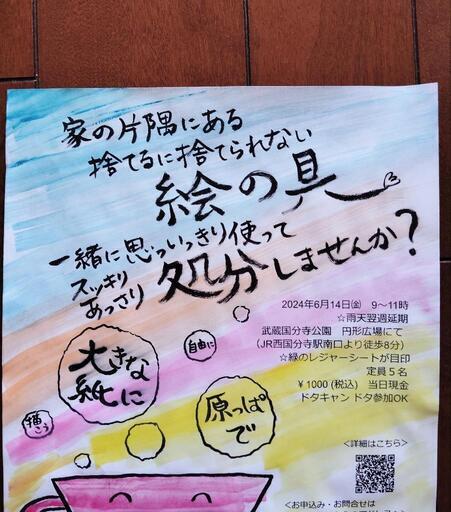 家の片隅にある
捨てるに捨てられない
絵の具
一緒に思いっきり使って
スッキリ
あっさり
処分しませんか?
2024年6月14日㈮ 9〜11時
☆雨天翌週延期
武蔵国分寺公園 円形広場にて
(JR西国分寺駅南口より徒歩8分)
☆緑のレジャーシートが目印
定員5名
¥1000(税込) 当日現金
ドタキャン ドタ参加OK
自由に
大きな
紙に
描こう
原っぱ
で
<詳細はこちら>
<お申込み・お問合せは